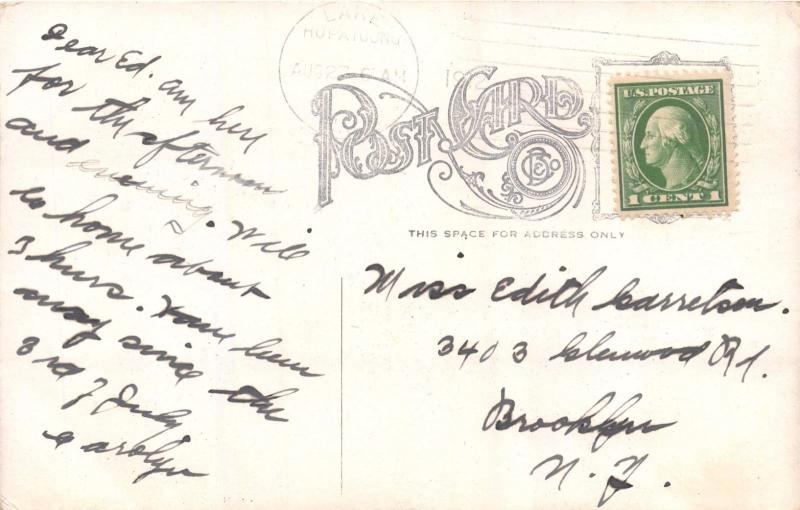 LAKE
HOPATCONG
AUG 27 6 AM
19
POST CARD
U.S. POSTAGE
1 CENT 1
THIS SPACE FOR ADDRESS ONLY
Dear Ed. am here
for the afternoon
and evening. Will
go home about
3 hurs. Have been
away since the
3rd of July
Carolyn
Miss Edith Garretson.
3403 Glenwood Rd.
Brooklyn
N. Y.